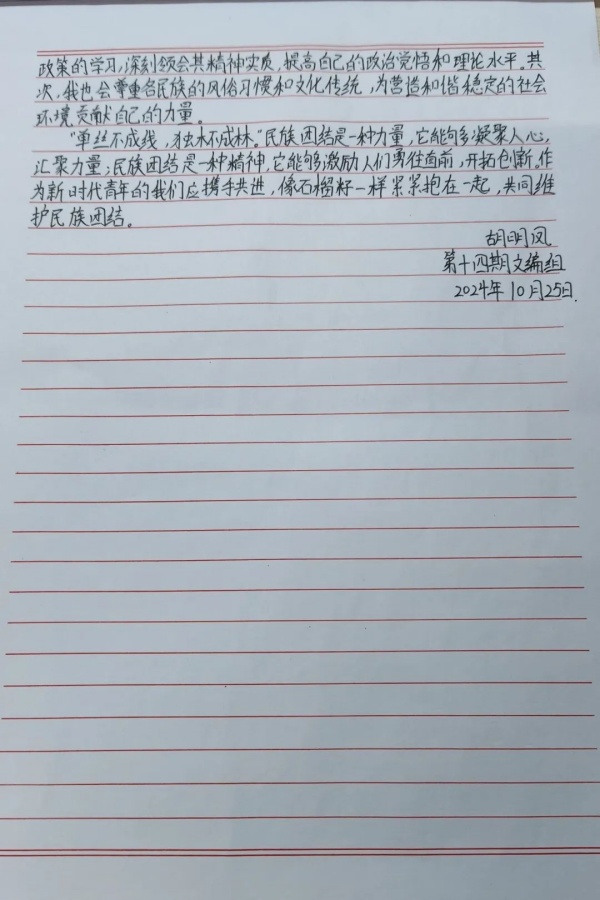 政策的学习，深刻领会其精神实质，提高自己的政治觉悟和理论水平。其
次，我也会尊重各民族的风俗习惯和文化传统，为营造和谐稳定的社会
环境贡献自己的力量。
“单丝不成线，独木不成林。”民族团结是一种力量，它能够凝聚人心，
汇聚力量；民族团结是一种精神，它能够激励人们勇往直前，开拓创新。作
为新时代青年的我们应携手共进，像石榴籽一样紧紧抱在一起，共同维
护民族团结。
胡明凤
第十四期文编组
2024年10月25日.